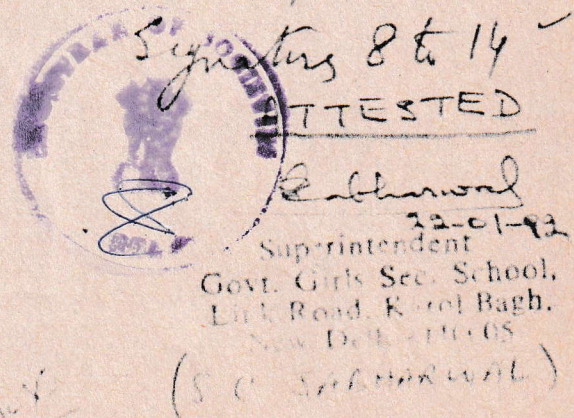 Signatures 8 to 14
ATTESTED
Sabharwal
22-01-92
Superintendent
Govt. Girls Sec. School,
Link Road, Karol Bagh,
New Delhi-110005
(S C SABHARWAL)